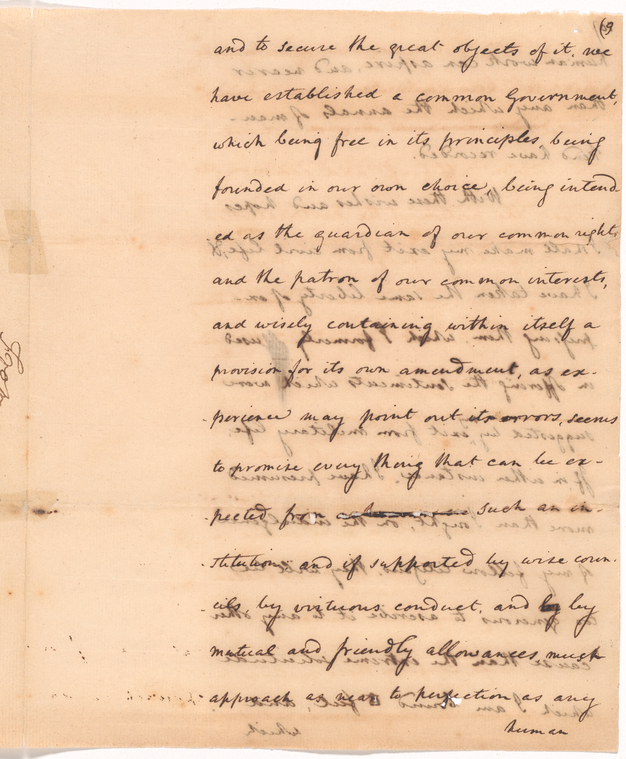 (9
and to secure the great objects of it, we
have established a common Government,
which being free in its principles, being
founded in our own choice, being intend
ed as the guardian of our common rights
and the patron of our common interests,
and wisely containing within itself a
provision for its own amendment, as ex-
perience may point out its errors, seems
to promise every thing that can be ex-
pected from such an in-
stitution, and if supported by wise coun-
cils by virtuous conduct, and by
mutual and friendly allowances, must
approach as near to perfection as any
human